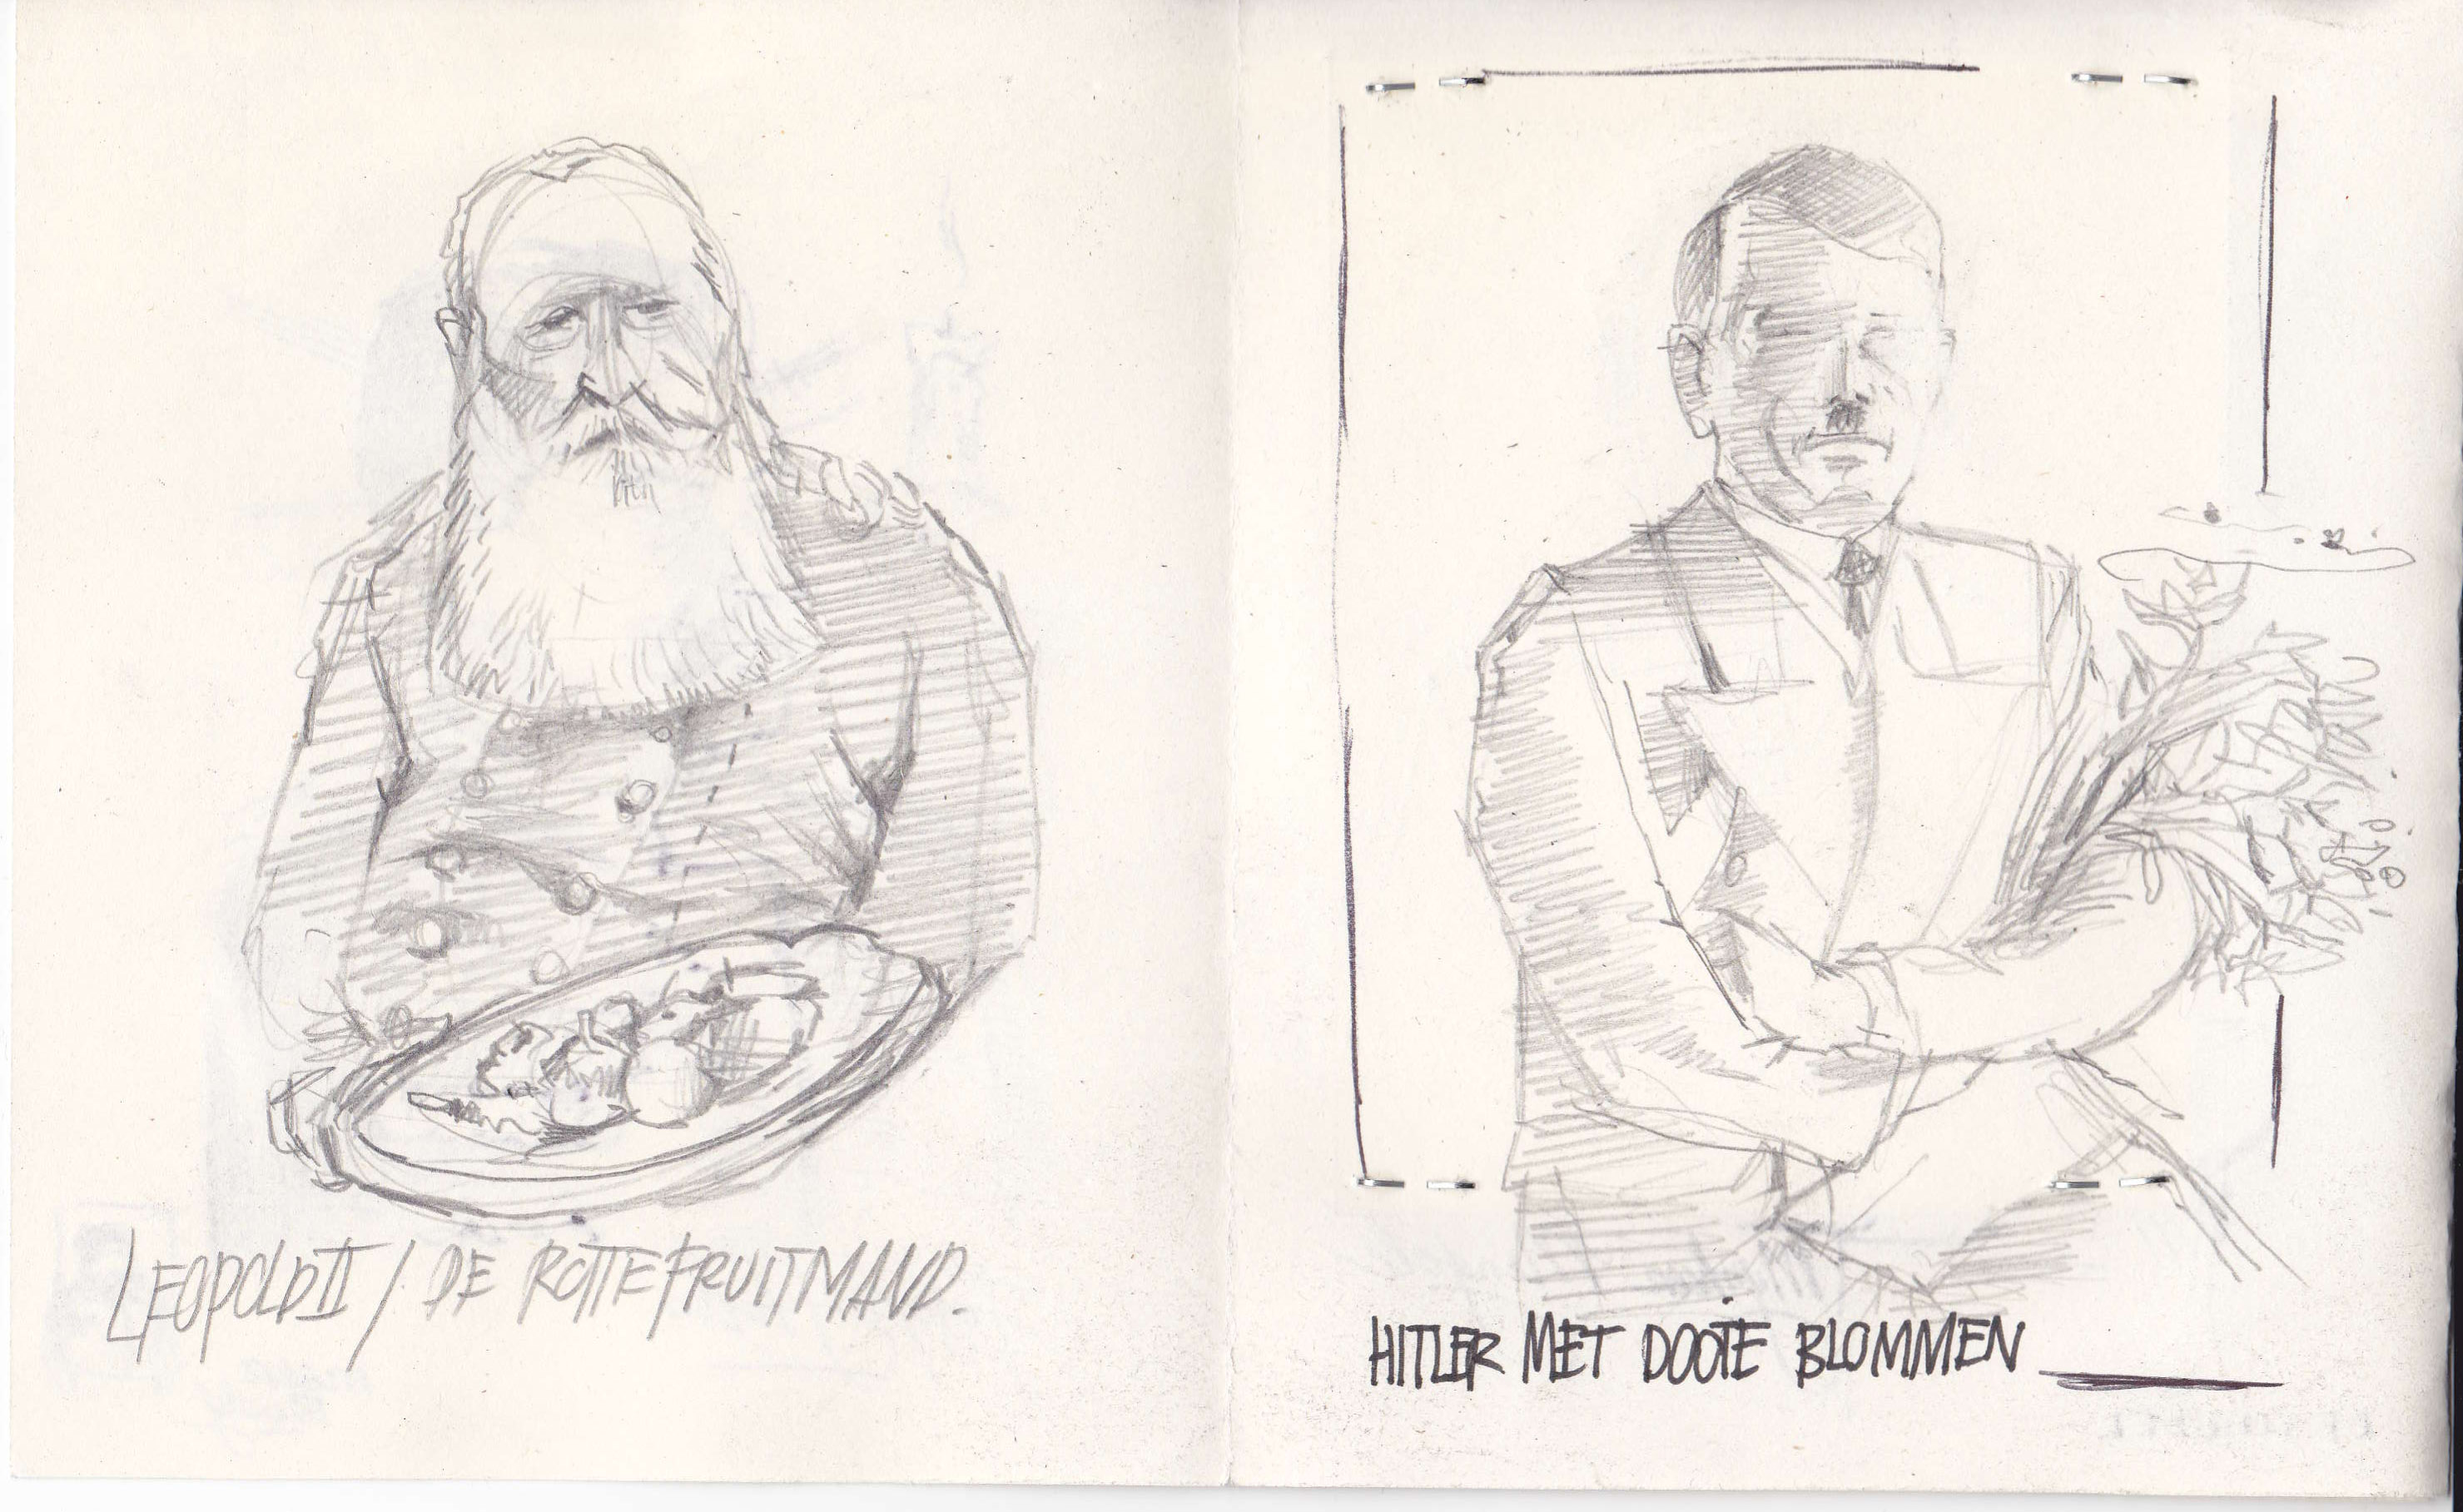 LEOPOLD II / DE ROTTE FRUITMAND.
HITLER MET DOOIE BLOMMEN